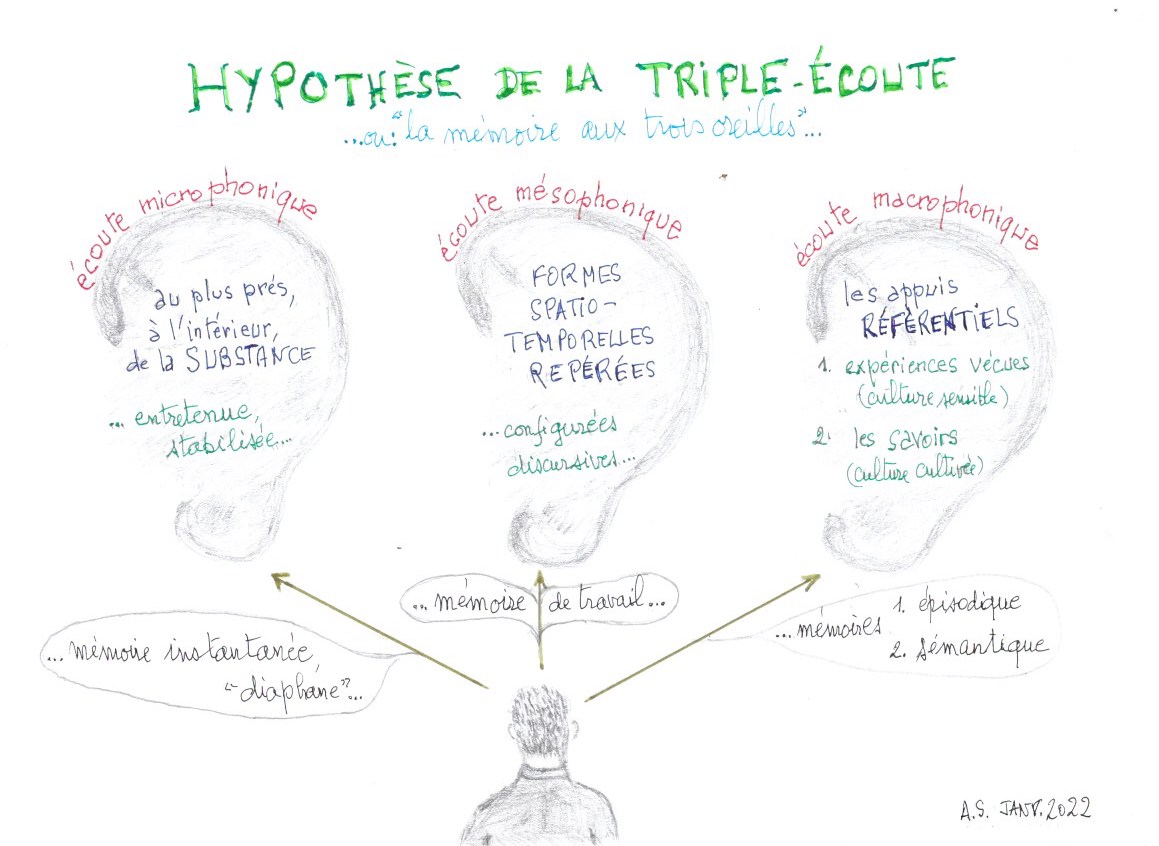 HYPOTHÈSE DE LA TRIPLE-ÉCOUTE
...ou: "la mémoire aux trois oreilles"...
écoute microphonique
au plus prés,
à l'intérieur,
de la SUBSTANCE
... entretenue,
stabilisée...
écoute mésophonique
FORMES
SPATIO-
TEMPORELLES
REPÉRÉES
...configurées
discursives...
écoute macrophonique
les appuis
RÉFÉRENTIELS
1. expériences vécues
(culture sensible)
2. les savoirs
(culture cultivée)
... mémoire instantanée,
"diaphane"...
... mémoire de travail...
...mémoires
1. épisodique
2. sémantique
A.S. JANV. 2022